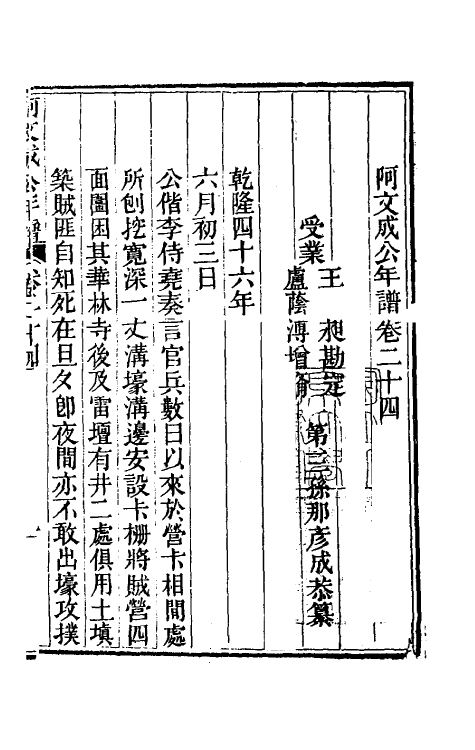 阿文成公年譜卷二十四
第三孫那彥成恭纂
受業王昶勘定
盧蔭溥增脩
乾隆四十六年
六月初三日
公偕李侍堯奏言官兵數日以來於營卡相間處
所刨挖寬深一丈溝壕溝邊安設卡柵將賊營四
面圍困其華林寺後及雷壇有井二處俱用土填
築賊匪自知死在旦夕卽夜間亦不敢出壕攻撲
阿文成公年譜 卷二十四 一